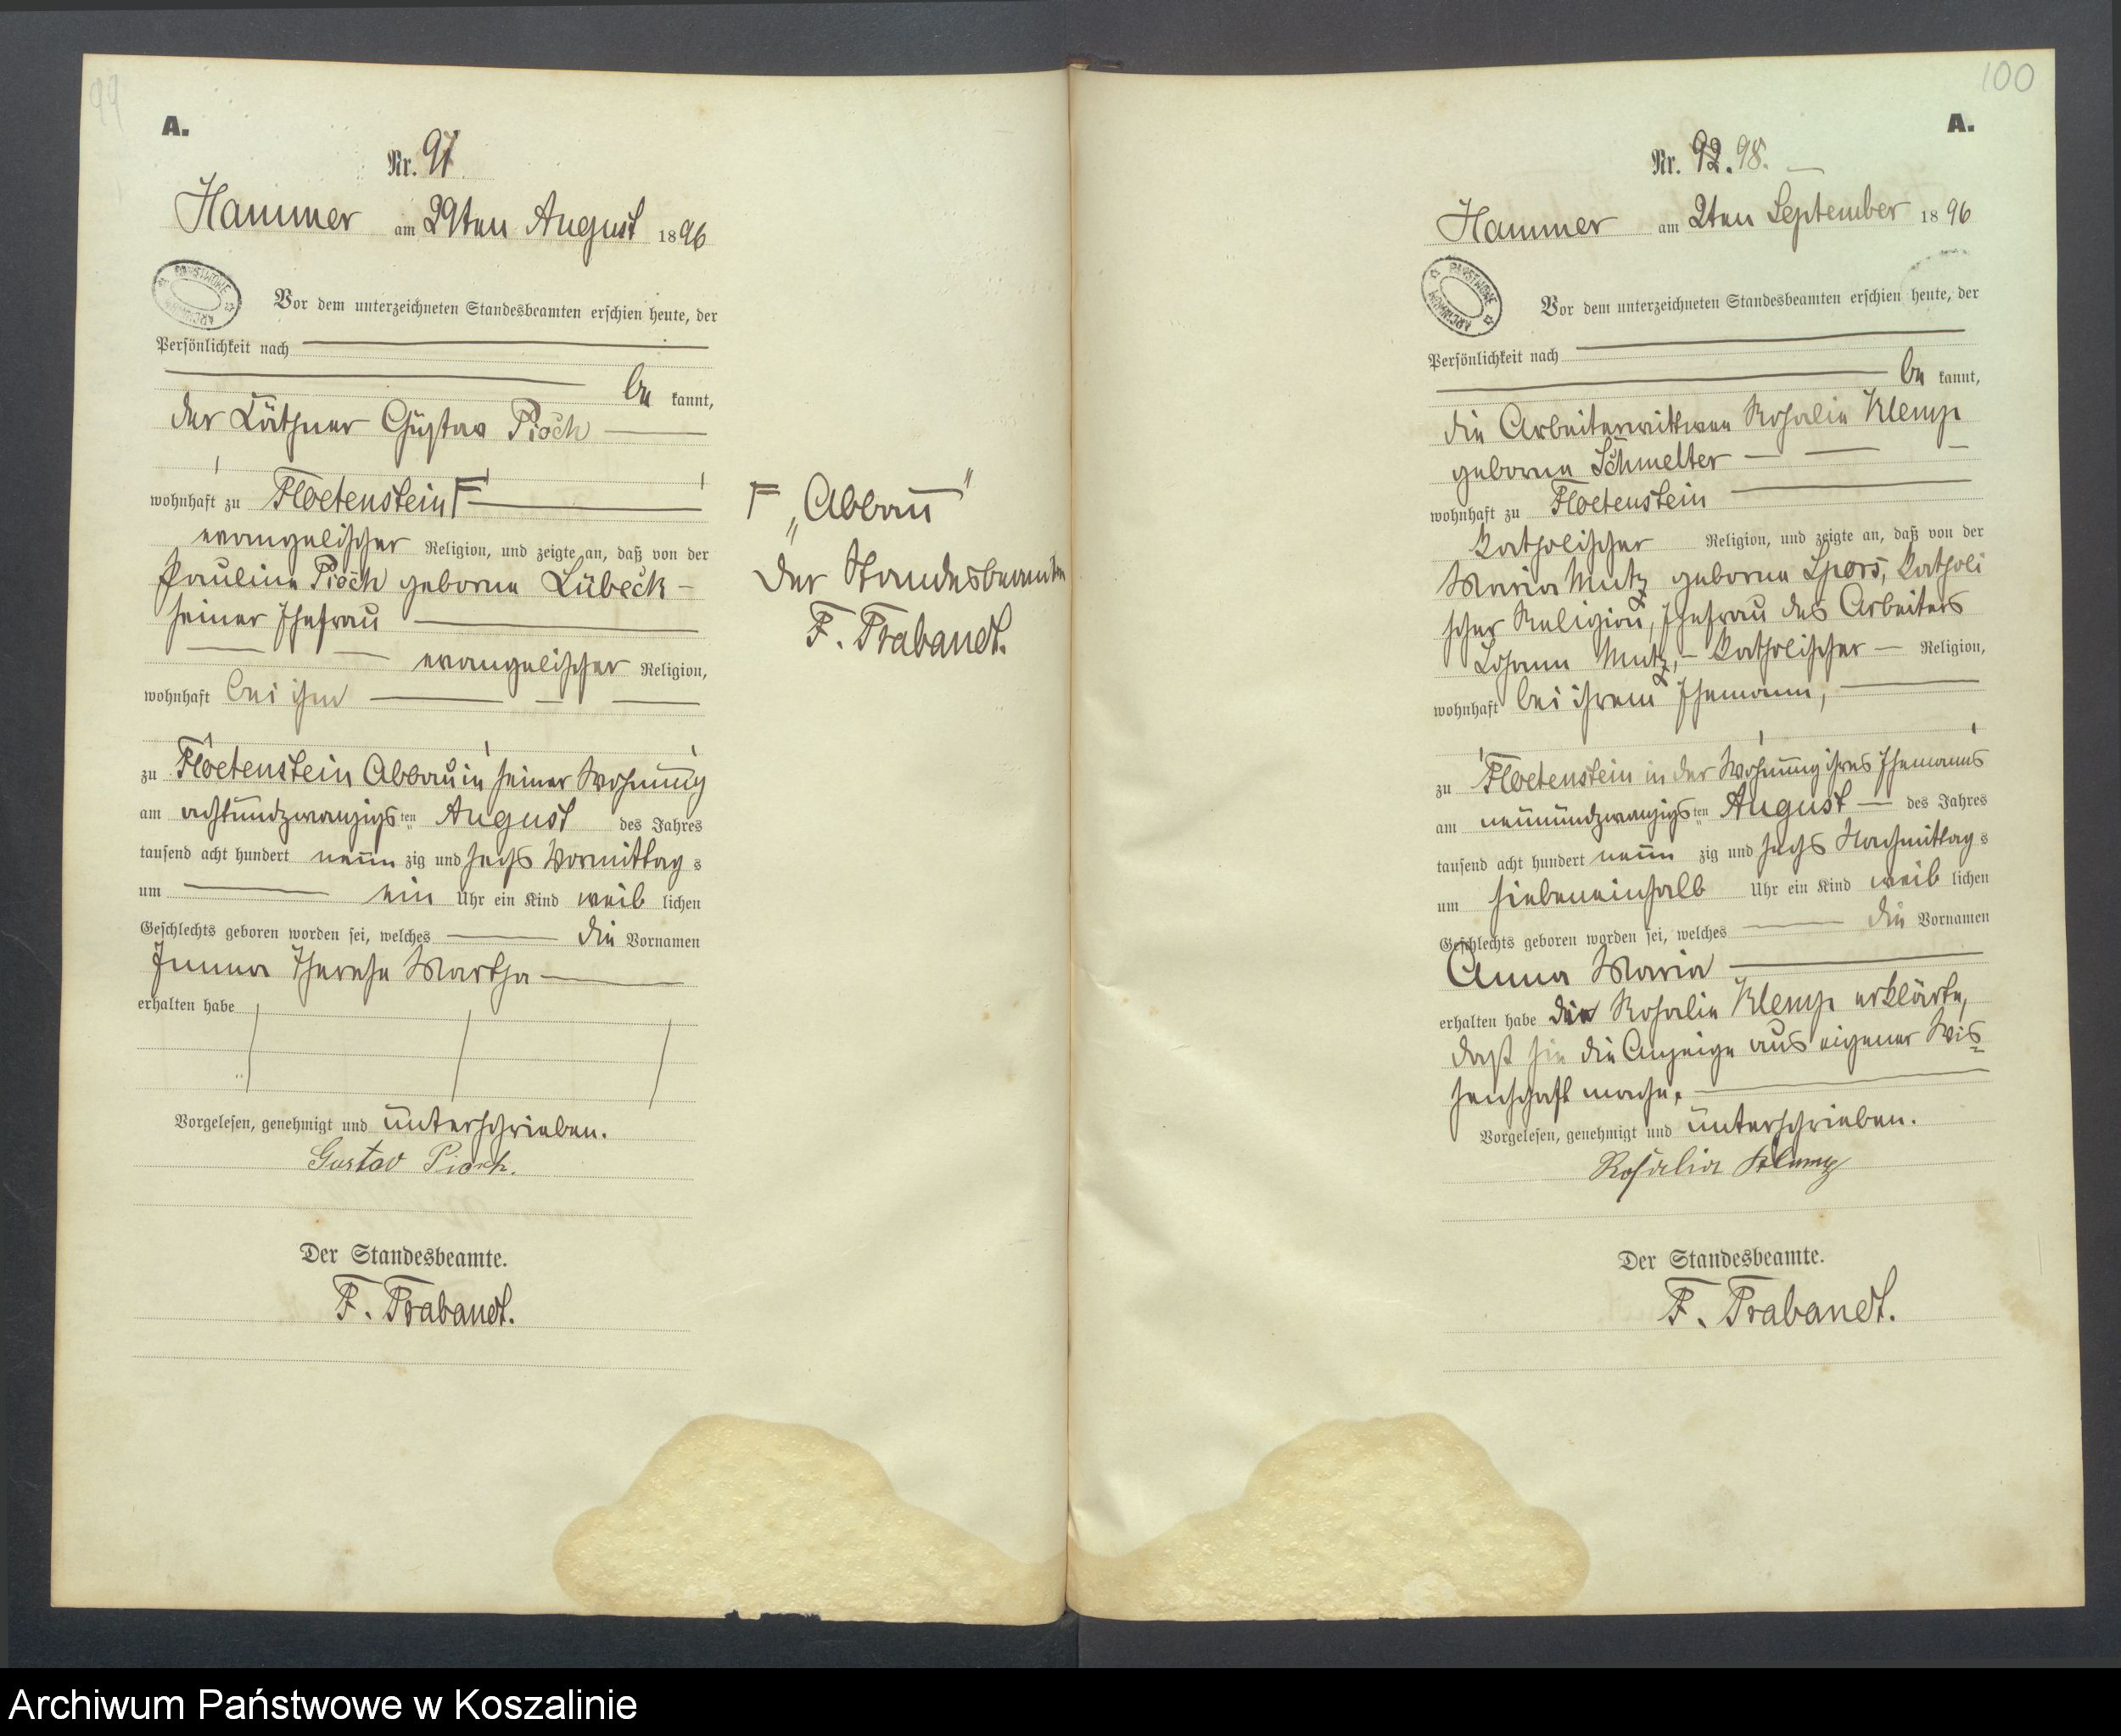 99
A.
Nr. 97.
Hammer am 29ten August 1896
Vor dem unterzeichneten Standesbeamten erschien heute, der
Persönlichkeit nach
be kannt,
der Käthner Gustav Pioch
wohnhaft zu Floetenstein
evangelischer Religion, und zeigte an, daß von der
Pauline Pioch geborne Lübeck
seiner Ehefrau
evangelischer Religion,
wohnhaft bei ihm
zu Floetenstein Abbau in seiner Wohnung
am achtundzwanzigs ten August des Jahres
tausend acht hundert neun zig und sechs Vormittag s
um ein Uhr ein Kind weib lichen
Geschlechts geboren worden sei, welches die Vornamen
Emma Therese Martha
erhalten habe
Vorgelesen, genehmigt und unterschrieben.
Gustav Pioch.
Der Standesbeamte.
F. Trabandt.
„Abbau"
Der Standesbeamte
F. Trabandt.
100
A.
Nr. 92. 98.
Hammer am 2ten September 1896
PAŃSTWOWE ARCHIWUM
Vor dem unterzeichneten Standesbeamten erschien heute, der
Persönlichkeit nach
be kannt,
die Arbeiterwittwe Rosalie Klemp
geborne Schmelter
wohnhaft zu Floetenstein
katholischer Religion, und zeigte an, daß von der
Maria Mutz geborne Spors, katholi
scher Religion, Ehefrau des Arbeiters
Johann Mutz, – katholischer – Religion,
wohnhaft bei ihrem Ehemann,
zu Floetenstein in der Wohnung ihres Ehemanns
am neunundzwanzigs ten August des Jahres
tausend acht hundert neun zig und sechs Nachmittag s
um siebeneinhalb Uhr ein Kind weib lichen
Geschlechts geboren worden sei, welches die Vornamen
Anna Maria
erhalten habe die Rosalie Klemp erklärte,
daß sie die Anzeige aus eigener Wis=
senschaft mache.
Vorgelesen, genehmigt und unterschrieben.
Rosalia Klemp
Der Standesbeamte.
F. Trabandt.
Archiwum Państwowe w Koszalinie